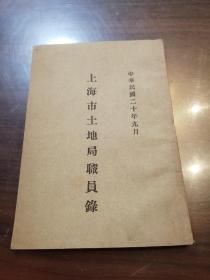 中華民國二十年九月
上海市土地局職員錄